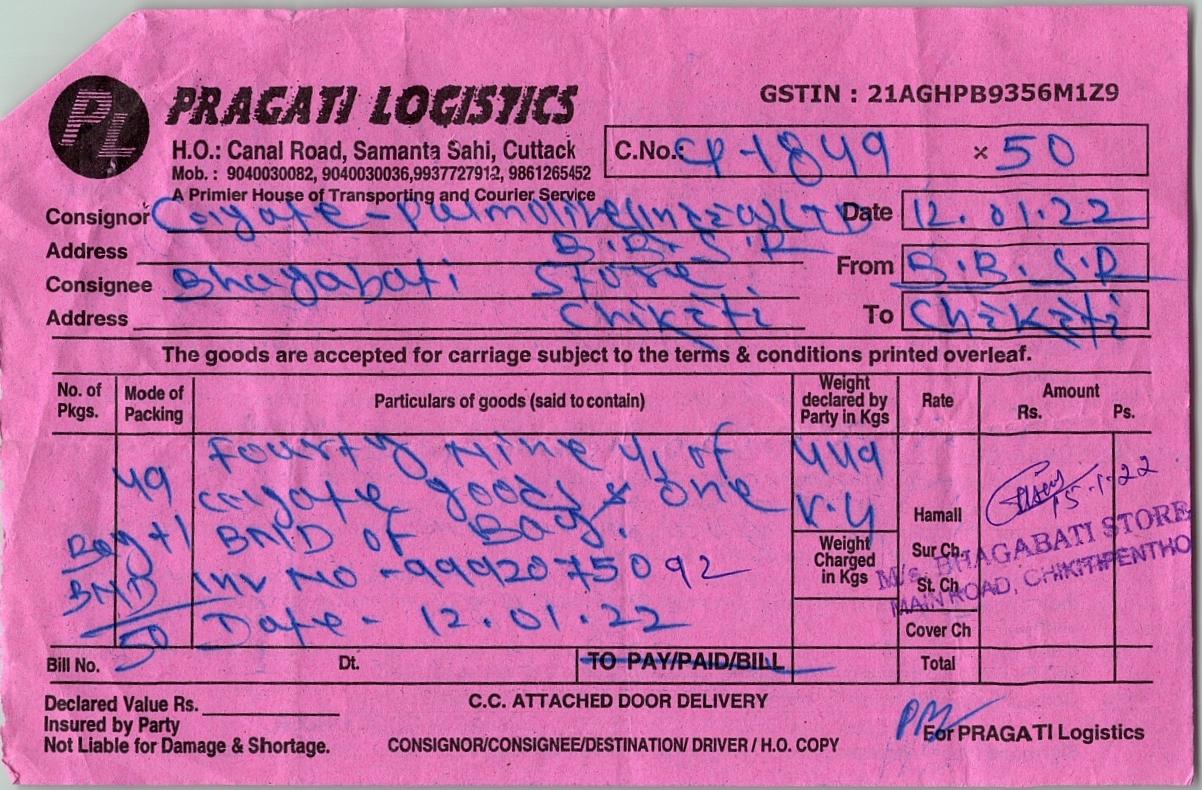 PL PRAGATI LOGISTICS
GSTIN : 21AGHPB9356M1Z9
H.O.: Canal Road, Samanta Sahi, Cuttack
Mob. : 9040030082, 9040030036,9937727912, 9861265452
A Primier House of Transporting and Courier Service
C.No.: CP-1849 × 50
Consignor Colgate-Palmolive(India)LTD Date 12.01.22
Address B.B.S.R
Consignee Bhagabati Store From B.B.S.R
Address Chikiti To Chikiti
The goods are accepted for carriage subject to the terms & conditions printed overleaf.
No. of Pkgs. Mode of Packing Particulars of goods (said to contain) Weight declared by Party in Kgs Rate Amount Rs. Ps.
Fourty Nine of 449
49 Colgate goods & one
Bag +1 BND of Bag.
BND Inv No - 9992075092
50 Date - 12.01.22
Weight Charged in Kgs
Hamali
Sur Ch.
St. Ch
Cover Ch
15-1-22
M/s. BHAGABATI STORE
MAIN ROAD, CHIKITIPENTHO
Bill No. Dt. TO PAY/PAID/BILL Total
Declared Value Rs.
Insured by Party
Not Liable for Damage & Shortage.
C.C. ATTACHED DOOR DELIVERY
CONSIGNOR/CONSIGNEE/DESTINATION/ DRIVER / H.O. COPY
For PRAGATI Logistics